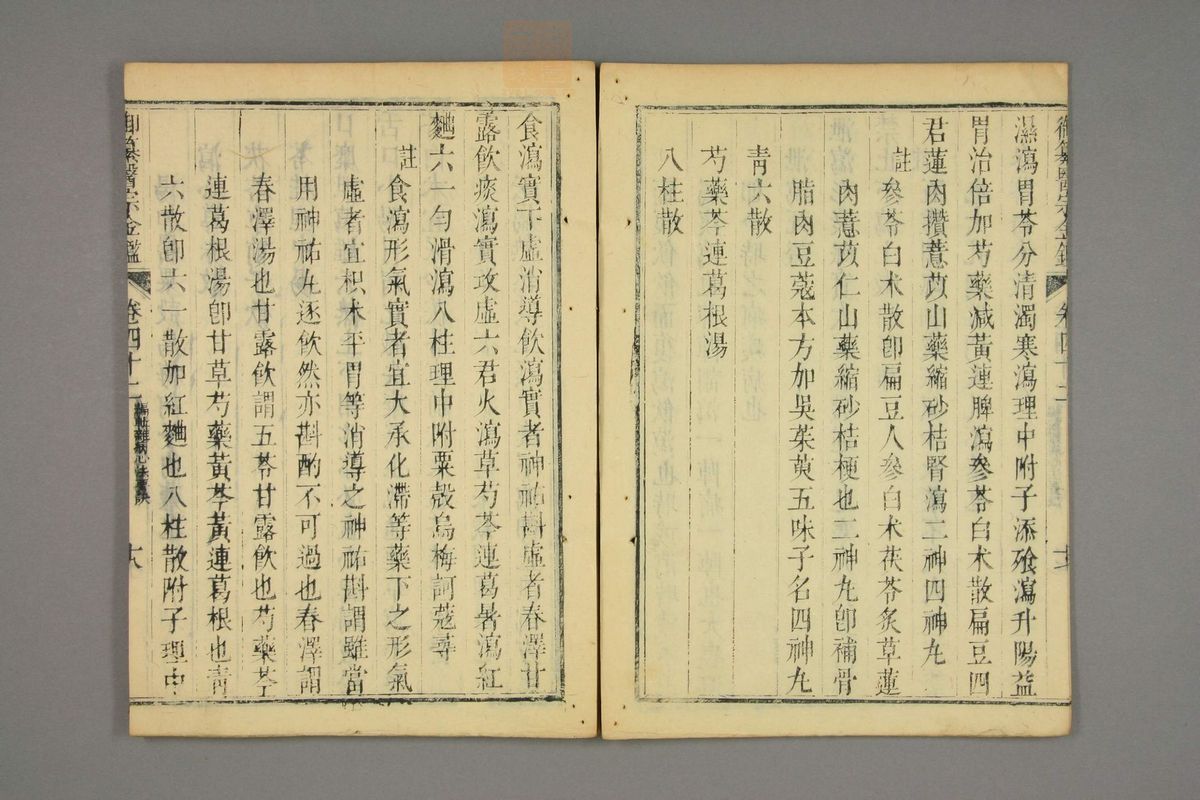 御纂醫宗金鑑 卷四十二
濕瀉胃苓分清濁寒瀉理中附子添飱瀉升陽益
胃治倍加芍藥減黃連脾瀉參苓白朮散扁豆四
君蓮肉攢薏苡山藥縮砂桔腎瀉二神四神丸
註 參苓白朮散卽扁豆人參白朮茯苓炙草蓮
肉薏苡仁山藥縮砂桔梗也二神丸卽補骨
脂肉豆蔻本方加吳茱萸五味子名四神丸
靑六散
芍藥芩連葛根湯
八柱散
食瀉實下虛消導飲瀉實者神祐斟虛者春澤甘
露飲痰瀉實攻虛六君火瀉草芍芩連葛暑瀉紅
麯六一勻滑瀉八柱理中附粟殼烏梅訶蔻尋
註 食瀉形氣實者宜大承化滯等藥下之形氣
虛者宜枳朮平胃等消導之神祐斟謂雖當
用神祐丸逐飲然亦斟酌不可過也春澤謂
春澤湯也甘露飲謂五苓甘露飲也芍藥芩
連葛根湯卽甘草芍藥黃芩黃連葛根也靑
六散卽六一散加紅麯也八柱散附子理中
御纂醫宗金鑑 卷四十二 編輯雜病心法要訣